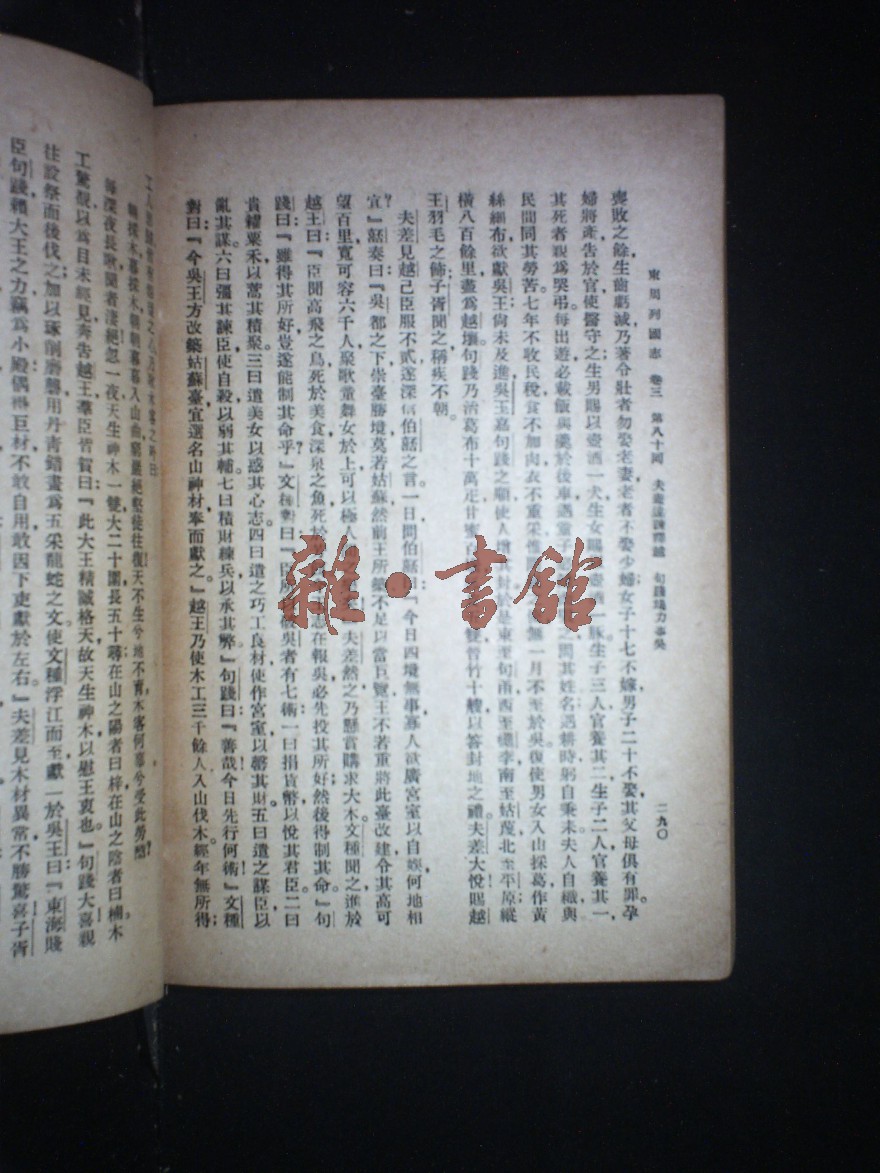 東周列國志 卷三 第八十回 夫差違諫釋越 句踐竭力事吳 二九〇
喪敗之餘生齒虧減乃著令壯者勿娶老妻老者不娶少婦女子十七不嫁男子二十不娶其父母俱有罪孕
婦將產告於官使醫守之生男賜以壺酒一犬生女賜壺酒一豚生子三人官養其二生子二人官養其一
其死者親爲哭弔每出遊必載飯與羹於後車遇童子 問其姓名遇耕時躬自秉耒夫人自織與
民間同其勞苦七年不收民稅食不加肉衣不重采惟 無一月不至於吳復使男女入山採葛作黃
絲細布欲獻吳王尚未及進吳王嘉句踐之順使人增 封 是東至句甬西至檇李南至姑蔑北至平原縱
橫八百餘里盡爲越壤句踐乃治葛布十萬疋甘蜜 晉竹十艘以答封地之禮夫差大悅賜越
王羽毛之飾子胥聞之稱疾不朝。
夫差見越已臣服不貳遂深信伯嚭之言一日問伯嚭曰『今日四境無事寡人欲廣宮室以自娛何地相
宜』嚭奏曰『吳都之下崇臺勝境莫若姑蘇然前王所築不足以當巨覽王不若重將此臺改建令其高可
望百里寬可容六千人聚歌童舞女於上可以極人 』夫差然之乃懸賞購求大木文種聞之進於
越王曰『臣聞高飛之鳥死於美食深泉之魚死於 志在報吳必先投其所好然後得制其命』句
踐曰『雖得其所好豈遂能制其命乎』文種對曰『臣所 破吳者有七術一曰捐貨幣以悅其君臣二曰
貴糴粟禾以虛其積聚三曰遺美女以惑其心志四曰遺之巧工良材使作宮室以罄其財五曰遺之謀臣以
亂其謀六曰彊其諫臣使自殺以弱其輔七曰積財練兵以承其弊』句踐曰『善哉今日先行何術』文種
對曰『今吳王方改築姑蘇臺宜選名山神材奉而獻之』越王乃使木工三千餘人入山伐木經年無所得
工人思歸 之心乃 木客之吟曰
朝採木暮採木朝朝暮暮入山曲窮巖絕壑徒往復天不生兮地不育木客何辜兮受此勞酷
每深夜長歌聞者淒絕忽一夜天生神木一雙大二十圍長五十尋在山之陽者曰梓在山之陰者曰楠木
工驚覩以爲目未經見奔告越王羣臣皆賀曰『此大王精誠格天故天生神木以慰王衷也』句踐大喜親
往設祭而後伐之加以琢削磨礱用丹青錯畫爲五采龍蛇之文使文種浮江而至獻於吳王曰『東海賤
臣句踐賴大王之力竊爲小殿偶得巨材不敢自用敢因下吏獻於左右』夫差見木材異常不勝驚喜子胥
雜·書館